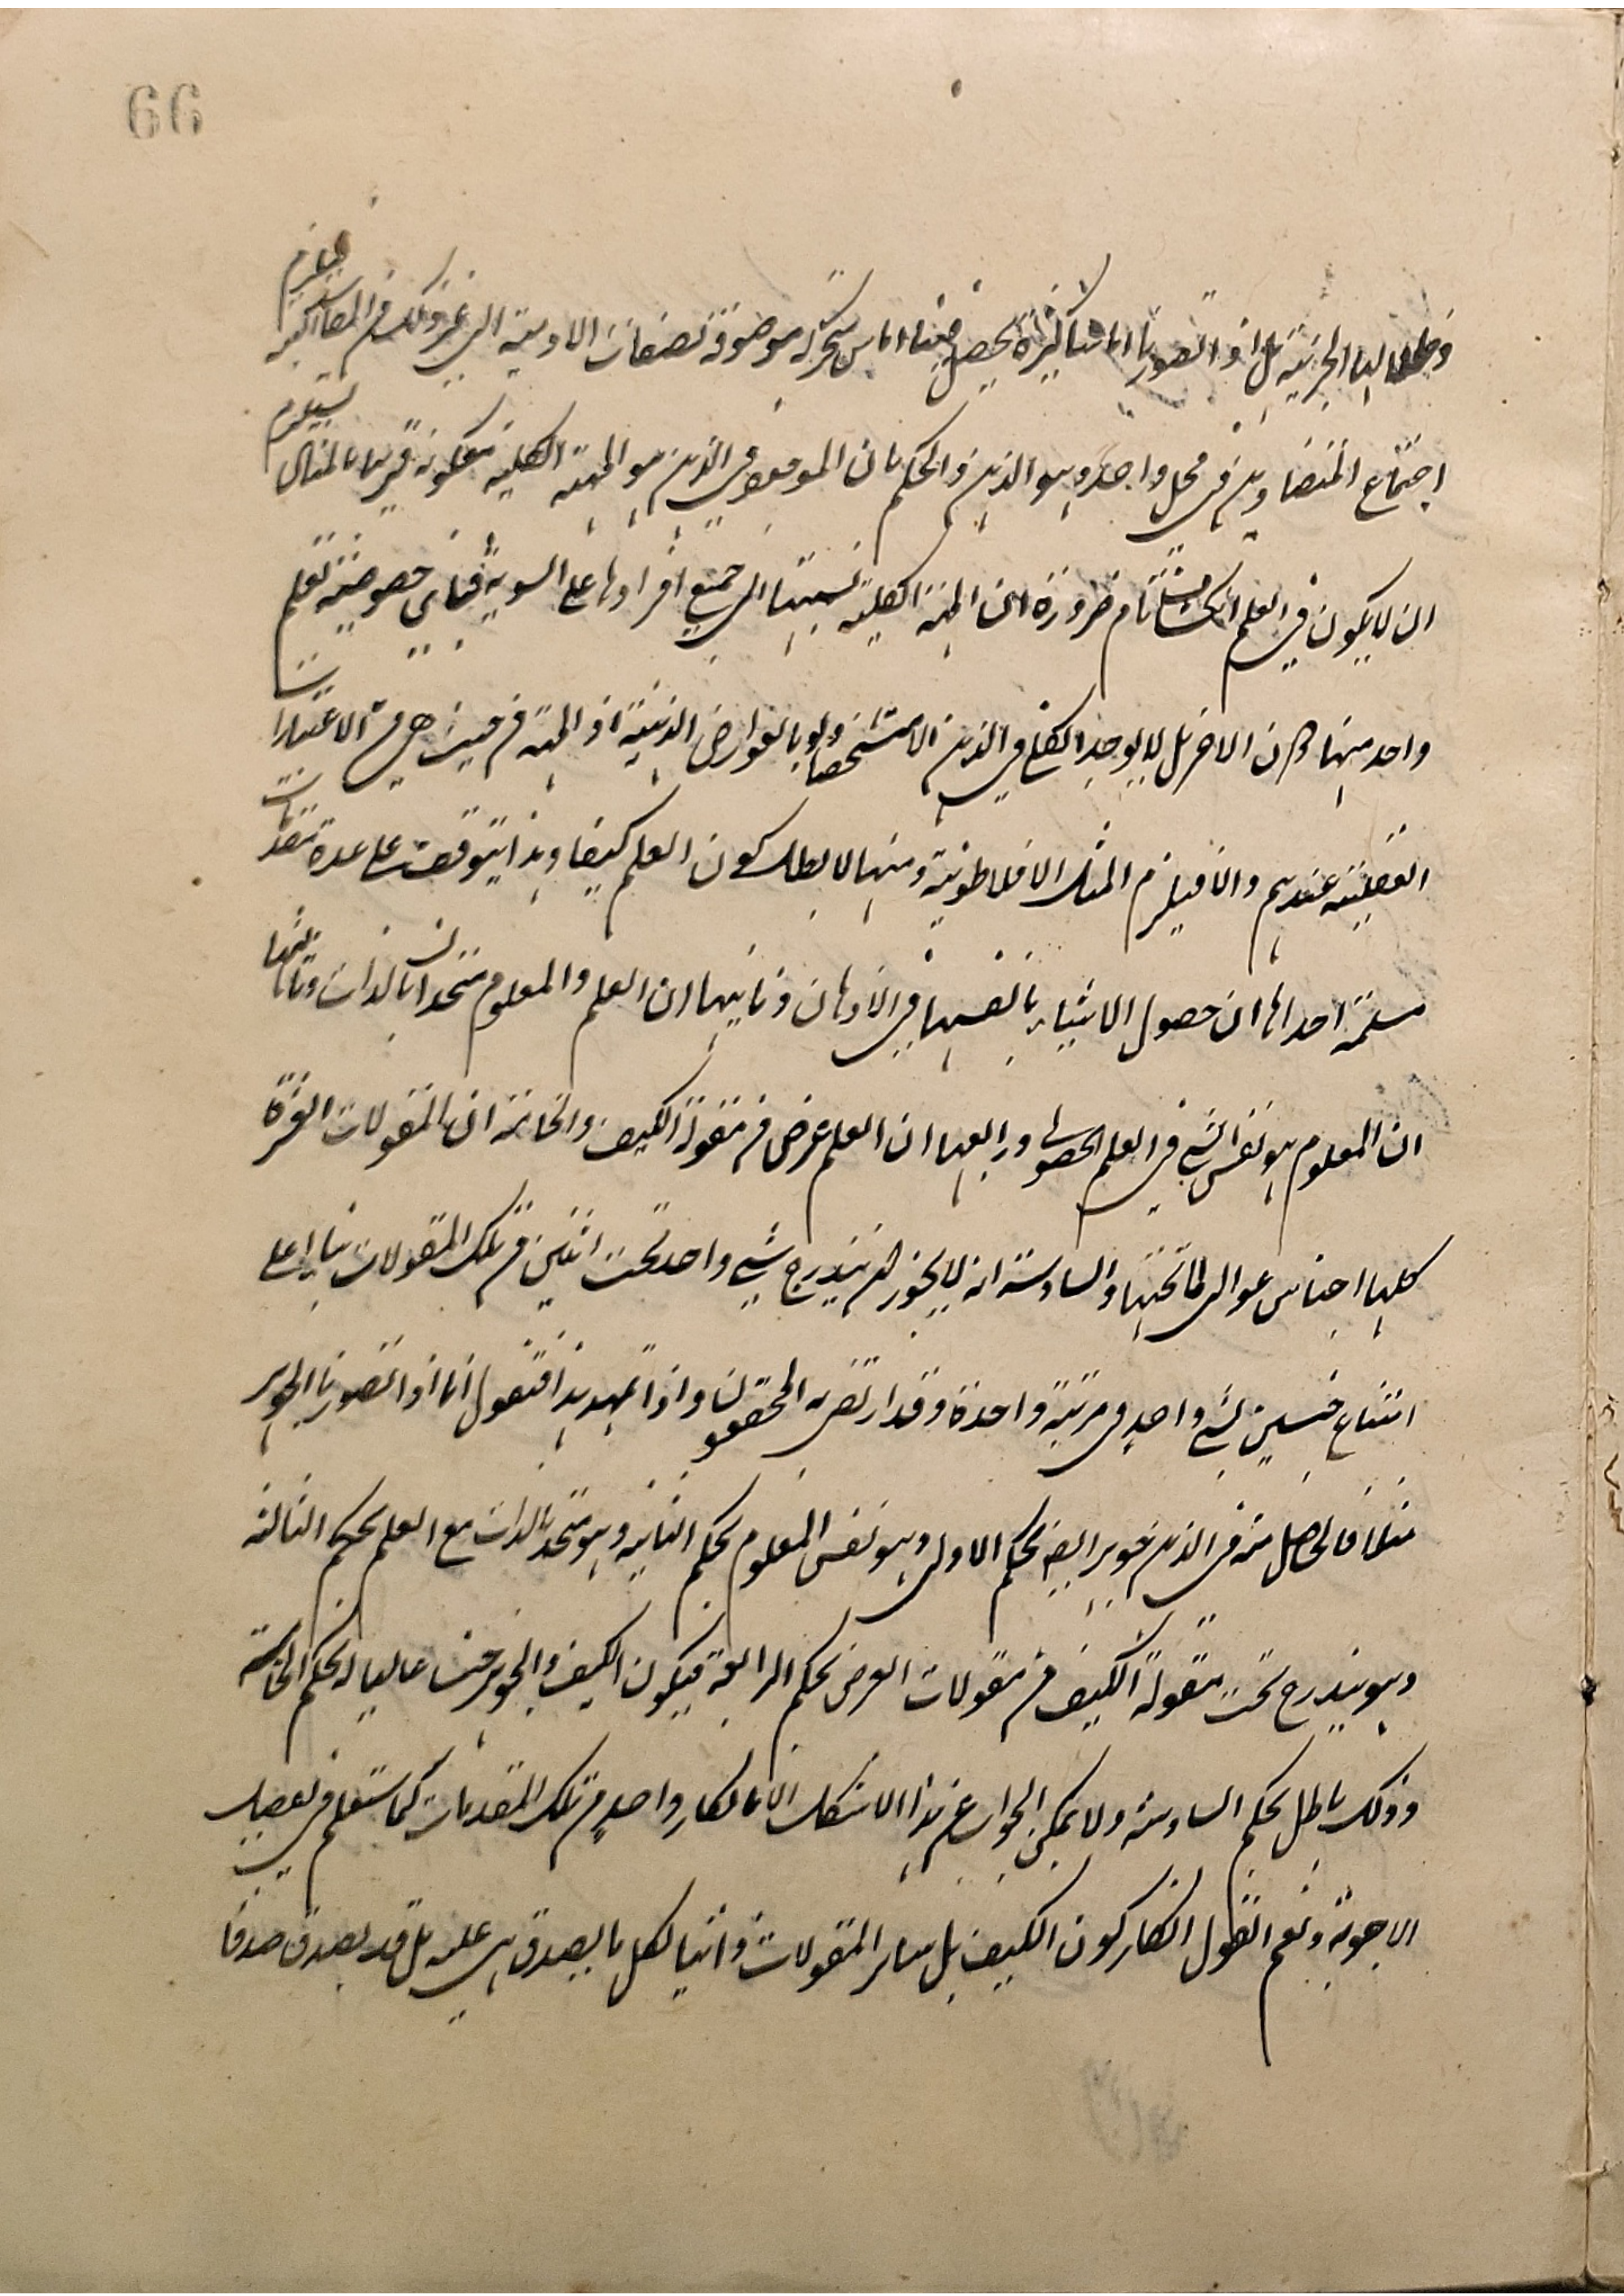 66
اجتماع المتضادين في محل واحد وهو الذهن والحكم بان الموجود في الذهن هو المهية الكلية فكونه قريبا بالمثال يستلزم
ان لا يكون في العلم انكشاف تام ضرورة ان المهية الكلية نسبتها الى جميع افرادها على السوية فباي خصوصية تعلم
واحد منها دون الاخر بل لا يوجد الكلي في الذهن الا متشخصا ولو بالعوارض الذهنية اذ المهية من حيث هي من الاعتباريات
العقلية عندهم والا فيلزم المثل الافلاطونية ومنها لابطال كون العلم كيفا وهذا يتوقف على عدة مقدمات
مسلمة احدها ان حصول الاشياء بانفسها في الاذهان وثانيها ان العلم والمعلوم متحدان بالذات وثالثها
ان المعلوم هو نفس الشي في العلم الحصولي ورابعها ان العلم عرض من مقولة الكيف والخامسة ان المقولات العشرة
كلها اجناس عوالي لما تحتها والسادسة انه لا يجوز ان يندرج شي واحد تحت اثنين من تلك المقولات بناء على
امتناع جنسين لشي واحد في مرتبة واحدة وقد ارتضى به المحققون واذا تمهد هذا فنقول انا اذا تصورنا الجوهر
مثلا فالحاصل منه في الذهن جوهر ايضا بحكم الاولى وهو نفس المعلوم بحكم الثانية وهو متحد بالذات مع العلم بحكم الثالثة
وهو يندرج تحت مقولة الكيف من مقولات العرض بحكم الرابعة فيكون الكيف والجوهر جنسا عاليا له بحكم الخامسة
وذلك باطل بحكم السادسة ولا يمكن الجواب عن هذا الاشكال الا بانكار واحد من تلك المقدمات كما ستعلم في تفصيل
الاجوبة ونعم القول انكار كون الكيف بل سائر المقولات ذاتيا لكل ما يصدق هي عليه بل قد يصدق صدقا